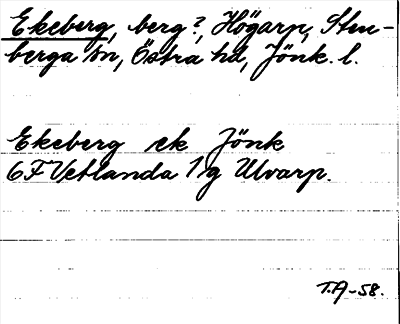 Ekeberg, berg?, Högarp, Sten-
berga sn, Östra hd, Jönk. l.
Ekeberg ek Jönk
6F Vetlanda 1g Ulvarp.
T.A-58.